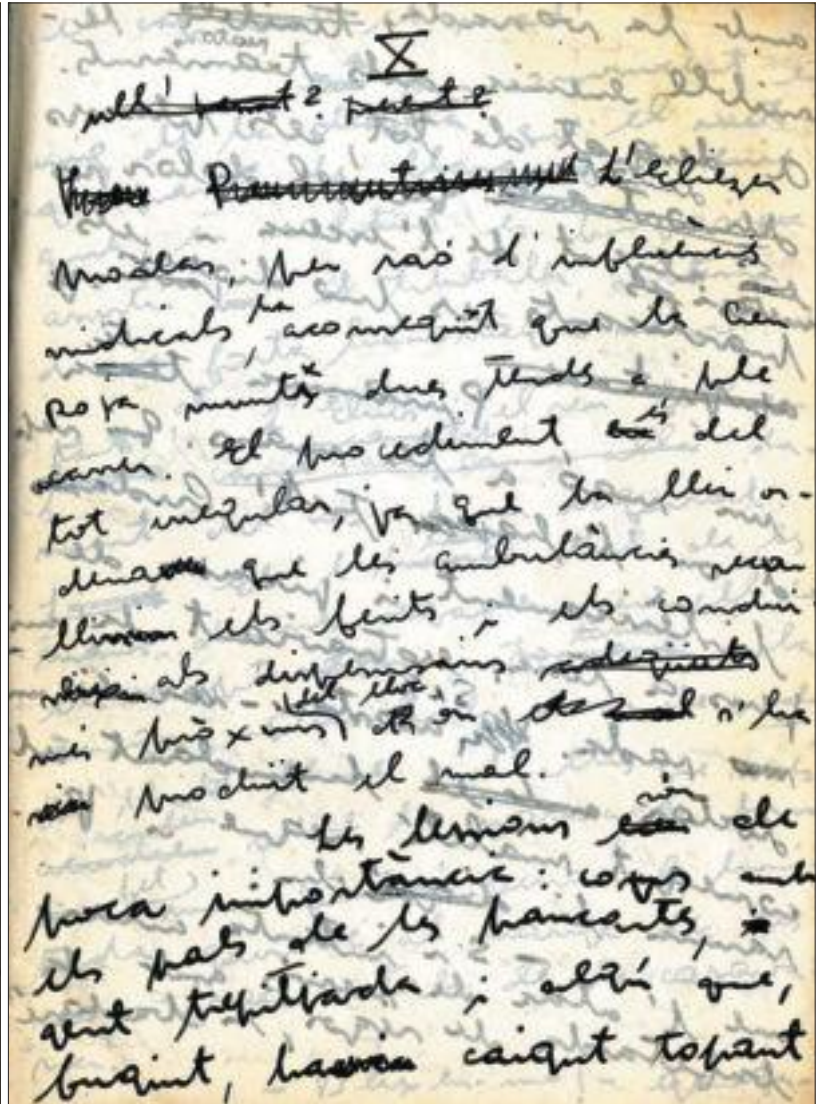 X
L'eliezer
Modas, per raó d'influències
sindicals, ha aconseguit que la Creu
Roja muntés dues tendes a ple
carrer. El procediment és del
tot irregular, ja que la llei or-
dena que les ambulàncies recu
llin els ferits i els condui
als dispensaris adequats
més pròxims del lloc on s'ha
produït el mal.
Les lesions són de
poca importància: cops amb
els pals de les pancartes,
gent trepitjada i algú que,
fugint, havia caigut topant